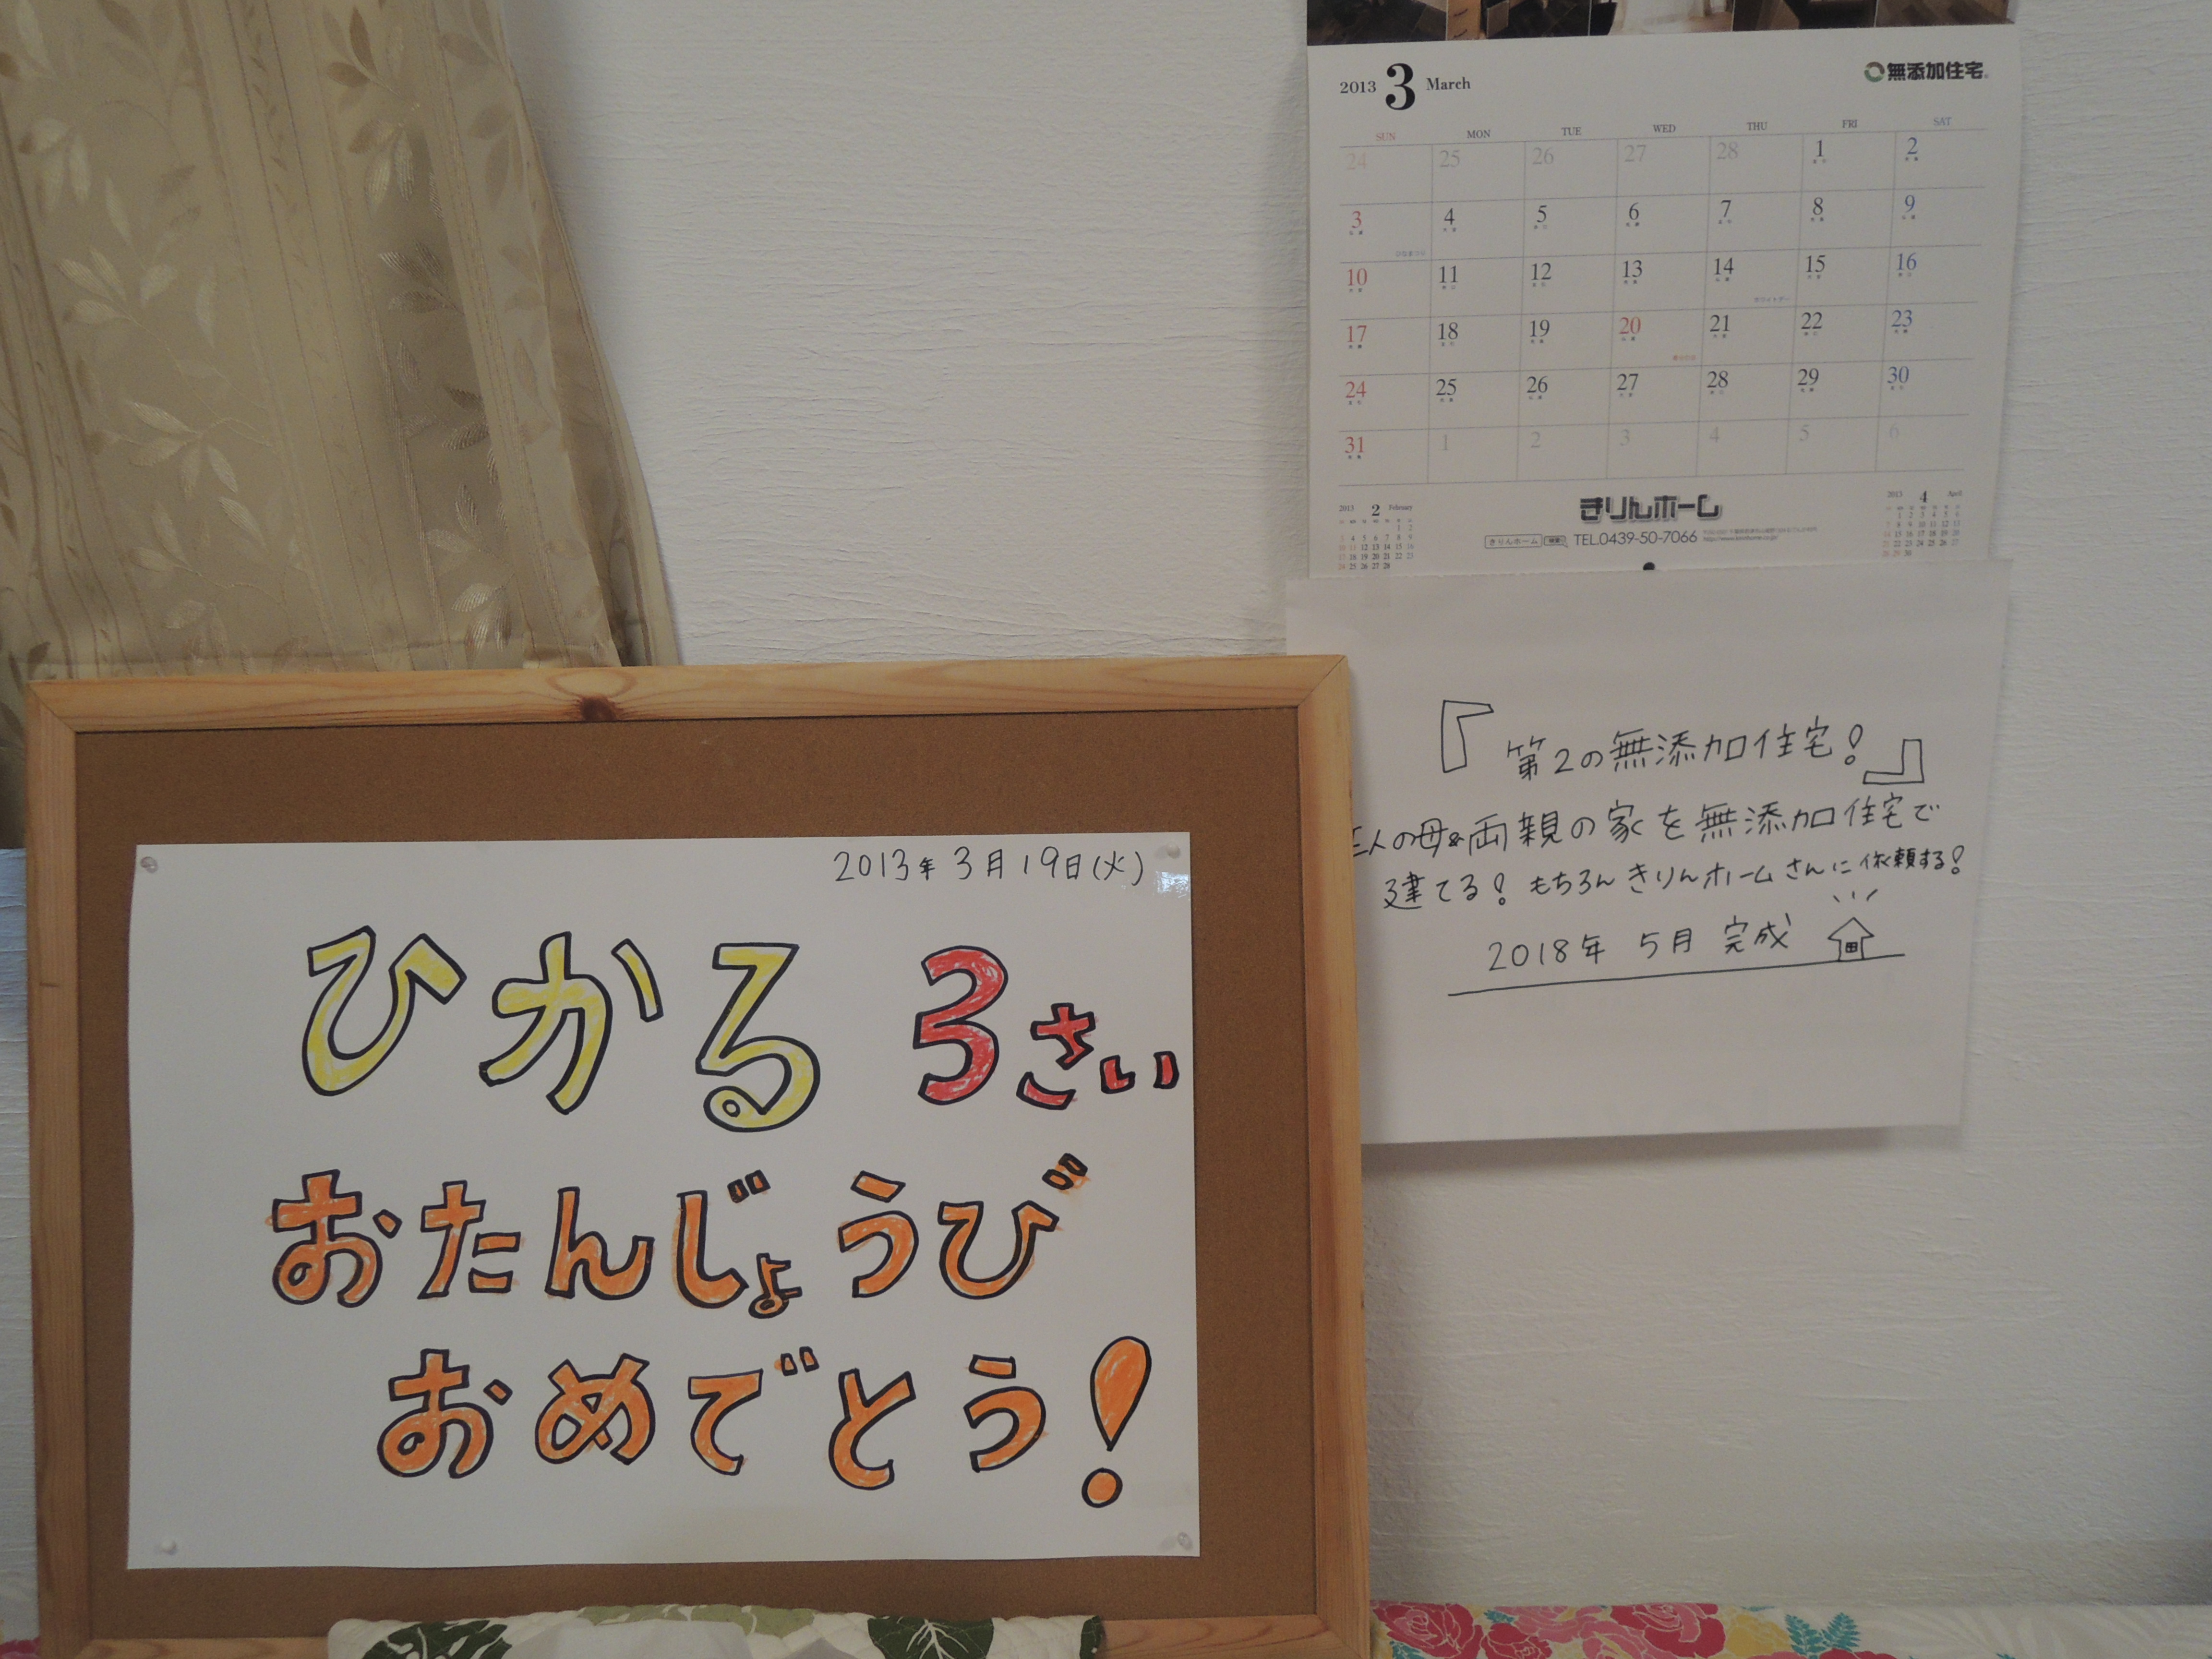 2013年3月19日(火)
ひかる 3さい
おたんじょうび
おめでとう!
2013 3 March
無添加住宅
SUN MON TUE WED THU FRI SAT
24 25 26 27 28 1 2
3 4 5 6 7 8 9
ひなまつり
10 11 12 13 14 15 16
ホワイトデー
17 18 19 20 21 22 23
24 25 26 27 28 29 30
31 1 2 3 4 5 6
きりんホーム
きりんホーム 検索 TEL.0439-50-7066
2013 2 February
2013 4 April
『第2の無添加住宅!』
人の母&両親の家を無添加住宅で
建てる! もちろん きりんホームさんに依頼する!
2018年 5月 完成